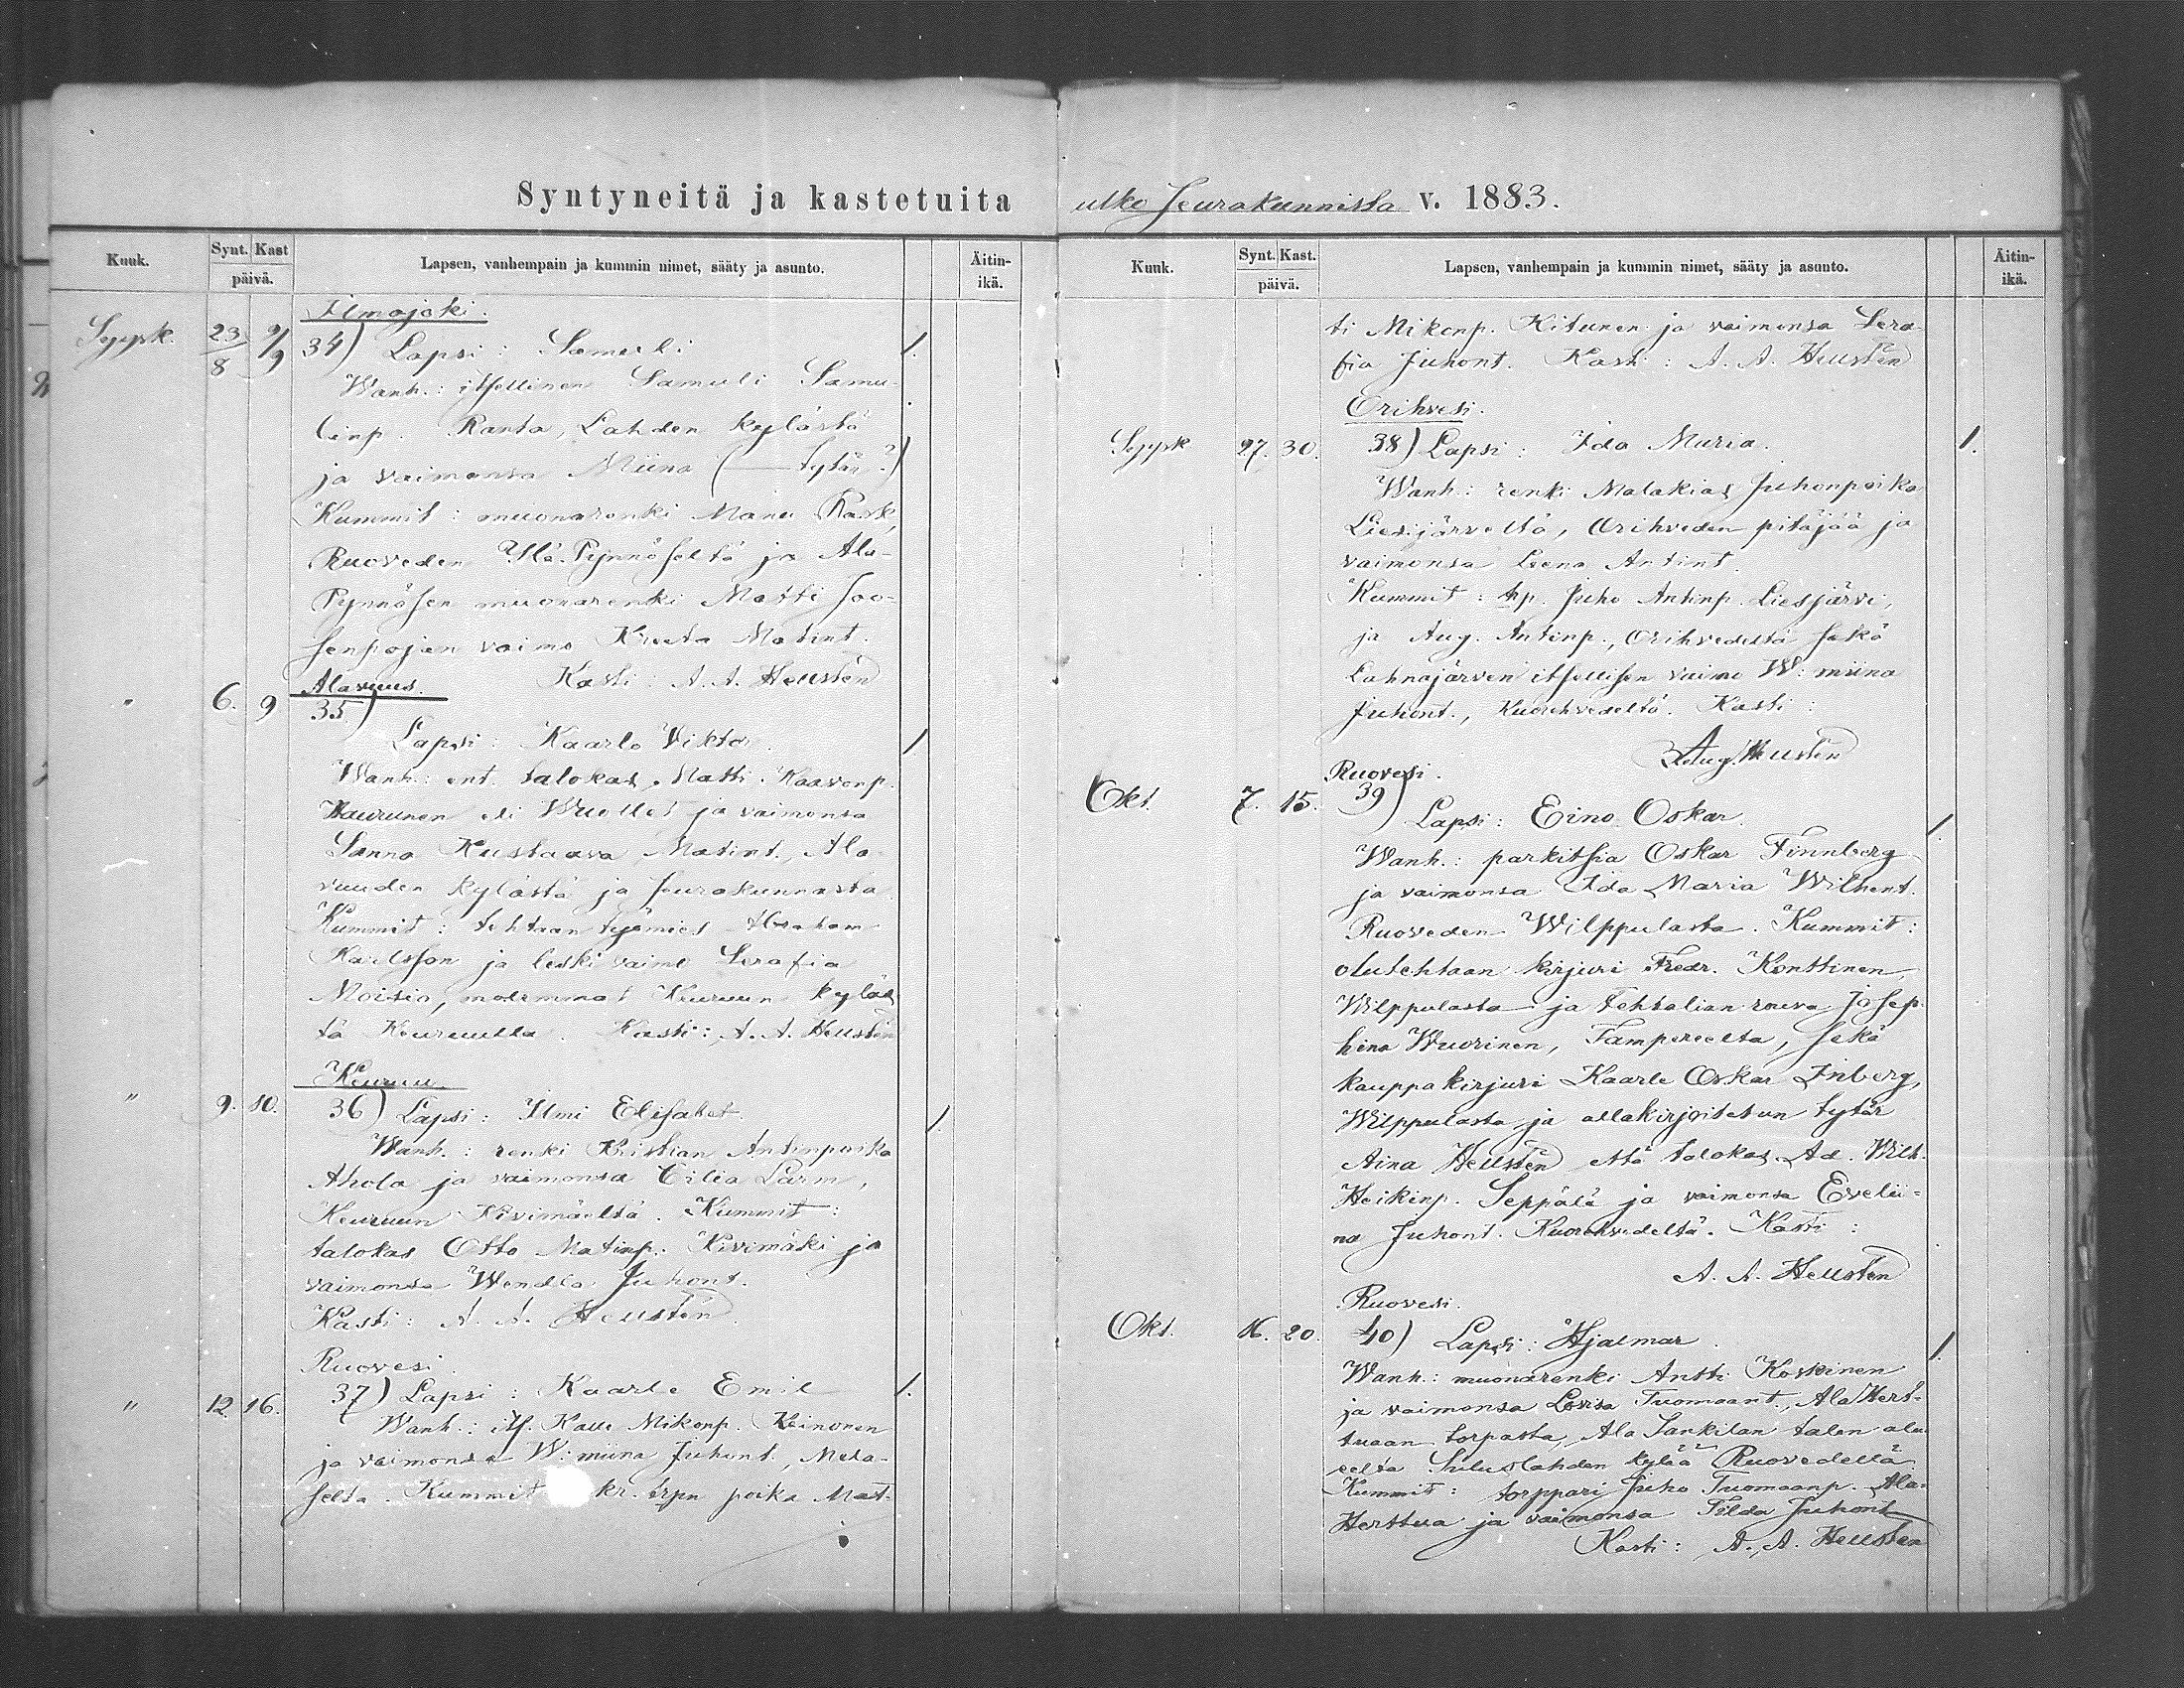 Syntyneitä ja kastetuita
Kuuk. Synt. Kast päivä. Lapsen, vanhempain ja kummin nimet, sääty ja asunto. Äitin-ikä.
Ilmajoki.
Syysk. 23/8 9/9 34) Lapsi: Samuli 1.
Wanh.: itsellinen Samuli Samu-
linp. Ranta, Lahden kylästä
ja vaimonsa Miina (— tytär?)
Kummit: muonarenki Manu Rask,
Ruoveden Ylä-Pynnöseltä ja Ala-
Pynnösen muonarenki Matti Joo-
senpojan vaimo Kreeta Matint.
Kasti: A. A. Hellstén
Alavuus.
" 6. 9 35)
Lapsi: Kaarlo Viktor 1
Wanh.: ent. talokas Matti Kaavonp.
Kaurunen eli Wuolles ja vaimonsa
Sanna Kustaava Matint., Ala-
vuuden kylästä ja seurakunnasta
Kummit: tehtaan työmies Abraham
Karlsson ja leskivaimo Serafia
Moisio, molemmat Keuruun kyläs
tä Keuruulla. Kasti: A. A. Hellstén
Keuruu
" 9. 10. 36) Lapsi: Ilmi Elisabet 1.
Wanh.: renki Kristian Antinpoika
Ahola ja vaimonsa Cilia Larm,
Keuruun Kivimäeltä. Kummit:
talokas Otto Matinp. Kivimäki ja
vaimonsa Wendla Juhont.
Kasti: A. A. Hellstén
Ruovesi.
" 12. 16. 37) Lapsi: Kaarle Emil 1.
Wanh.: its. Kalle Mikonp. Keinonen
ja vaimonsa W:miina Juhont.,
selta. Kummit kr. trpn poika Mat-
ulko seurakunnista v. 1883.
Kuuk. Synt. Kast. päivä. Lapsen, vanhempain ja kummin nimet, sääty ja asunto. Äitin-ikä.
ti Mikonp. Kitunen ja vaimonsa Sera-
fia Juhont. Kasti: A. A. Hellstén
Orihvesi.
Syysk 27. 30. 38) Lapsi: Ida Maria. 1.
Wanh.: renki Malakias Juhonpoika
Liesjärveltä, Orihveden pitäjää ja
vaimonsa Leena Antint.
Kummit: tp. Juho Antinp. Liesjärvi,
ja Aug. Antinp., Orihvedeltä sekä
Lahnajärven itsellisen vaimo W:miina
Juhont., Kuorehvedeltä. Kasti:
Aug. Hellstén
Ruovesi.
Okt. 7. 15. 39)
Lapsi: Eino Oskar. 1.
Wanh.: parkitsia Oskar Finnberg
ja vaimonsa Ida Maria Wilhent.
Ruoveden Wilppulasta. Kummit:
olutehtaan kirjuri Fredr. Konttinen,
Wilppulasta ja tehtalian rouva Josep-
hina Wuorinen, Tampereelta, sekä
kauppakirjuri Kaarle Oskar Inberg,
Wilppulasta ja allakirjoitetun tytär
Aina Hellstén että talokas Ad. Wilh.
Heikinp. Seppälä ja vaimonsa Evelii-
na Juhont. Kuorehvedeltä. Kasti:
A. A. Hellstén
Ruovesi.
Okt. 16. 20. 40) Lapsi: Hjalmar. 1.
Wanh.: muonarenki Antti Koskinen
ja vaimonsa Lovisa Tuomaant., Ala Hert-
tuaan torpasta, Ala Sankilan talon alu
eelta kylää Ruovedellä
Kummit: torppari Juho Tuomaanp. Ala-
Herttua ja vaimonsa Tilda Juhont
Kasti: A. A. Hellstén